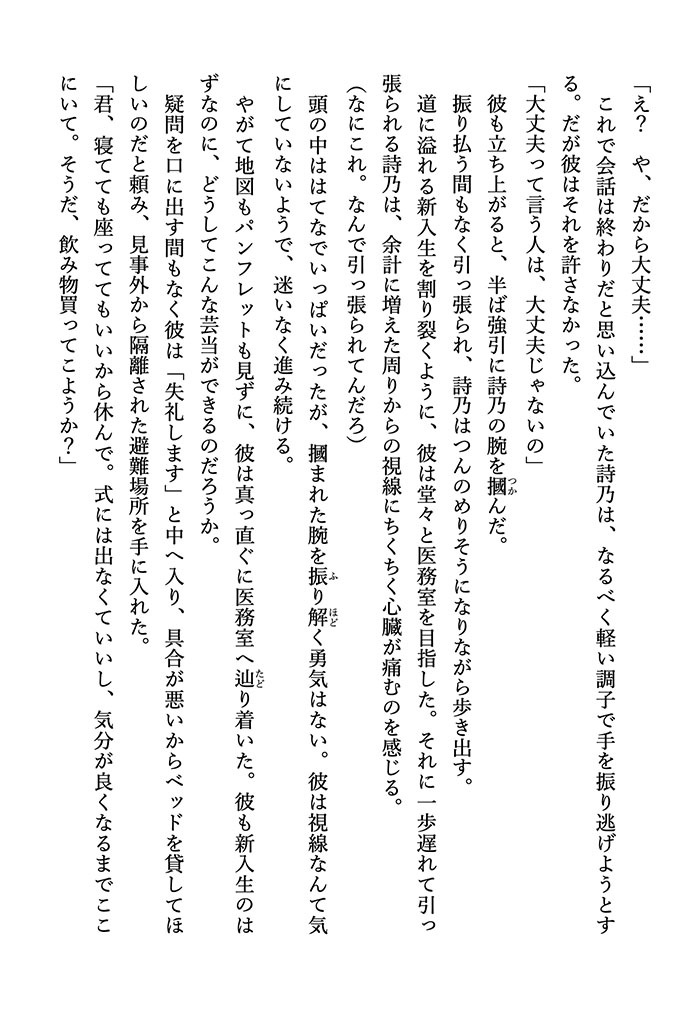 「え？　や、だから大丈夫……」
　これで会話は終わりだと思い込んでいた詩乃は、なるべく軽い調子で手を振り逃げようとす
る。だが彼はそれを許さなかった。
「大丈夫って言う人は、大丈夫じゃないの」
　彼も立ち上がると、半ば強引に詩乃の腕を摑んだ。
　振り払う間もなく引っ張られ、詩乃はつんのめりそうになりながら歩き出す。
　道に溢れる新入生を割り裂くように、彼は堂々と医務室を目指した。それに一歩遅れて引っ
張られる詩乃は、余計に増えた周りからの視線にちくちく心臓が痛むのを感じる。
（なにこれ。なんで引っ張られてんだろ）
　頭の中ははてなでいっぱいだったが、摑まれた腕を振り解く勇気はない。彼は視線なんて気
にしていないようで、迷いなく進み続ける。
　やがて地図もパンフレットも見ずに、彼は真っ直ぐに医務室へ辿り着いた。彼も新入生のは
ずなのに、どうしてこんな芸当ができるのだろうか。
　疑問を口に出す間もなく彼は「失礼します」と中へ入り、具合が悪いからベッドを貸してほ
しいのだと頼み、見事外から隔離された避難場所を手に入れた。
「君、寝てても座っててもいいから休んで。式には出なくていいし、気分が良くなるまでここ
にいて。そうだ、飲み物買ってこようか？」